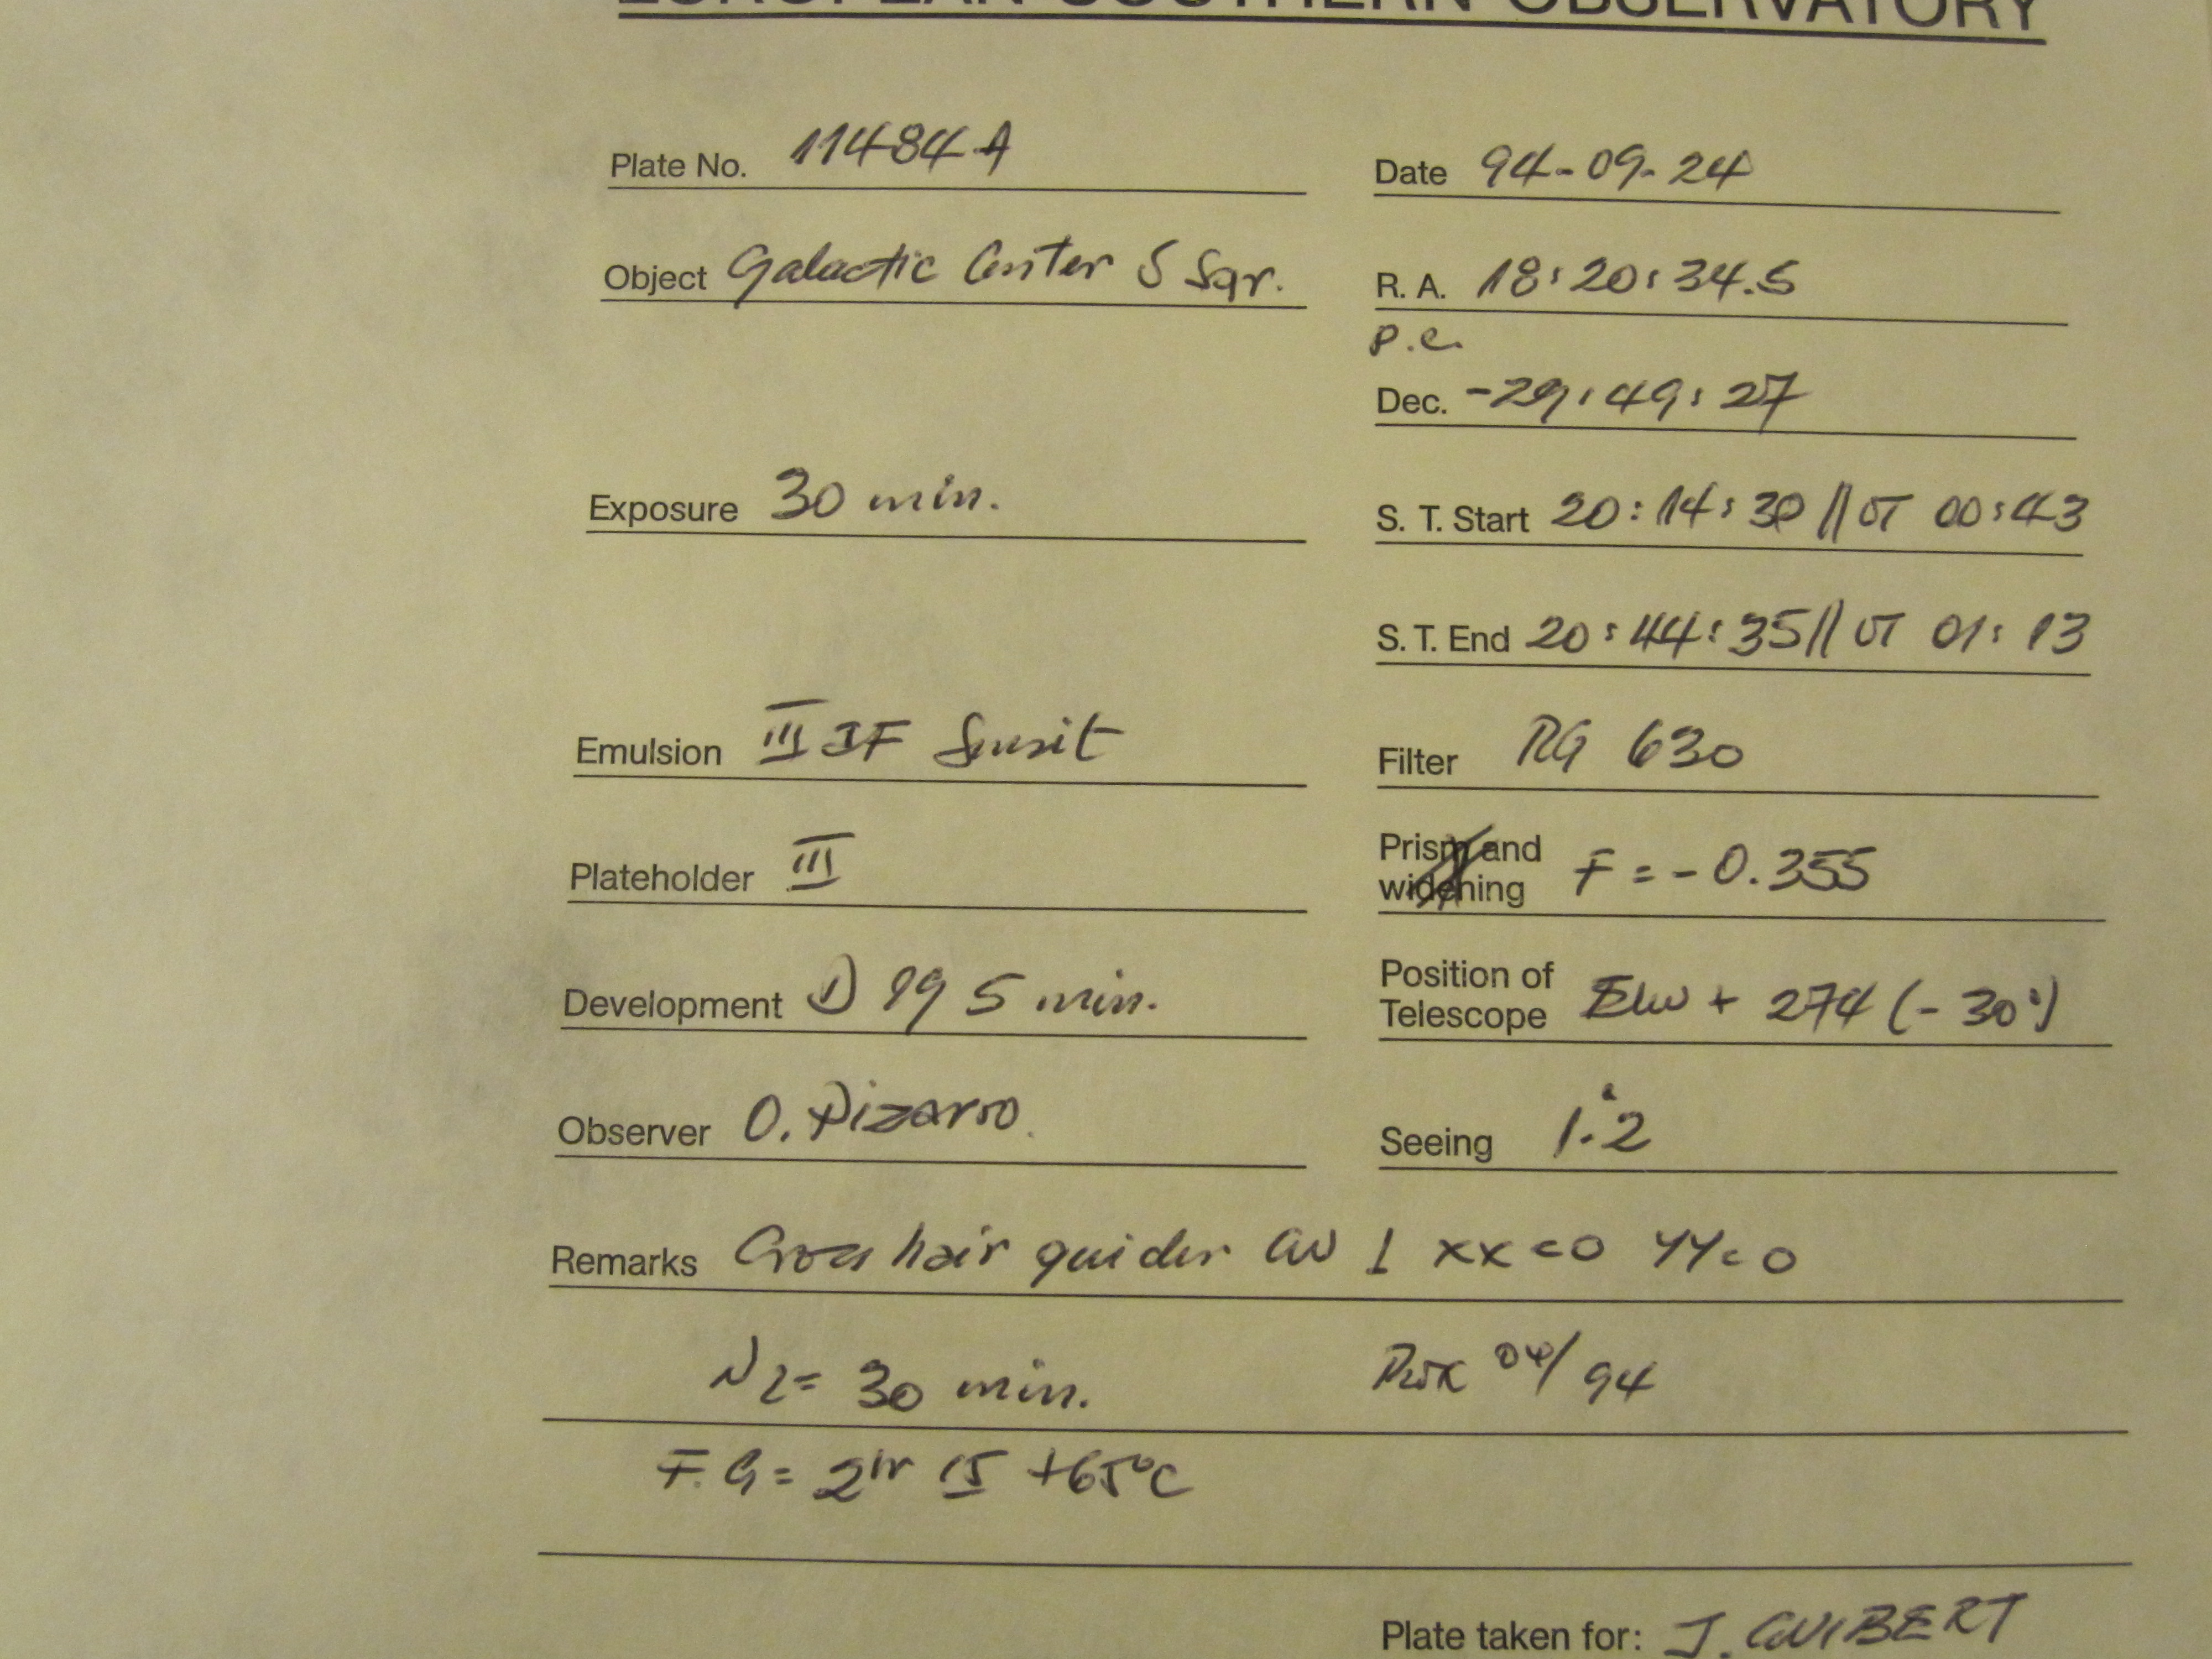 EUROPEAN SOUTHERN OBSERVATORY
Plate No. 11484 A
Date 94-09-24
Object Galactic Center S Sgr.
R. A. 18:20:34.5
p.e.
Dec. -29:49:27
Exposure 30 min.
S. T. Start 20:14:30 // UT 00:43
S. T. End 20:44:35 // UT 01:13
Emulsion III JF Sensit
Filter RG 630
Plateholder III
Prism and widening F = -0.355
Development D 19 5 min.
Position of Telescope + 274 (-30°)
Observer O. Pizarro.
Seeing 1.2
Remarks Cross hair guider 1 xx=0 YY=0
N2= 30 min.
04/94
F.G= 2hr +65°C
Plate taken for: J. GUIBERT